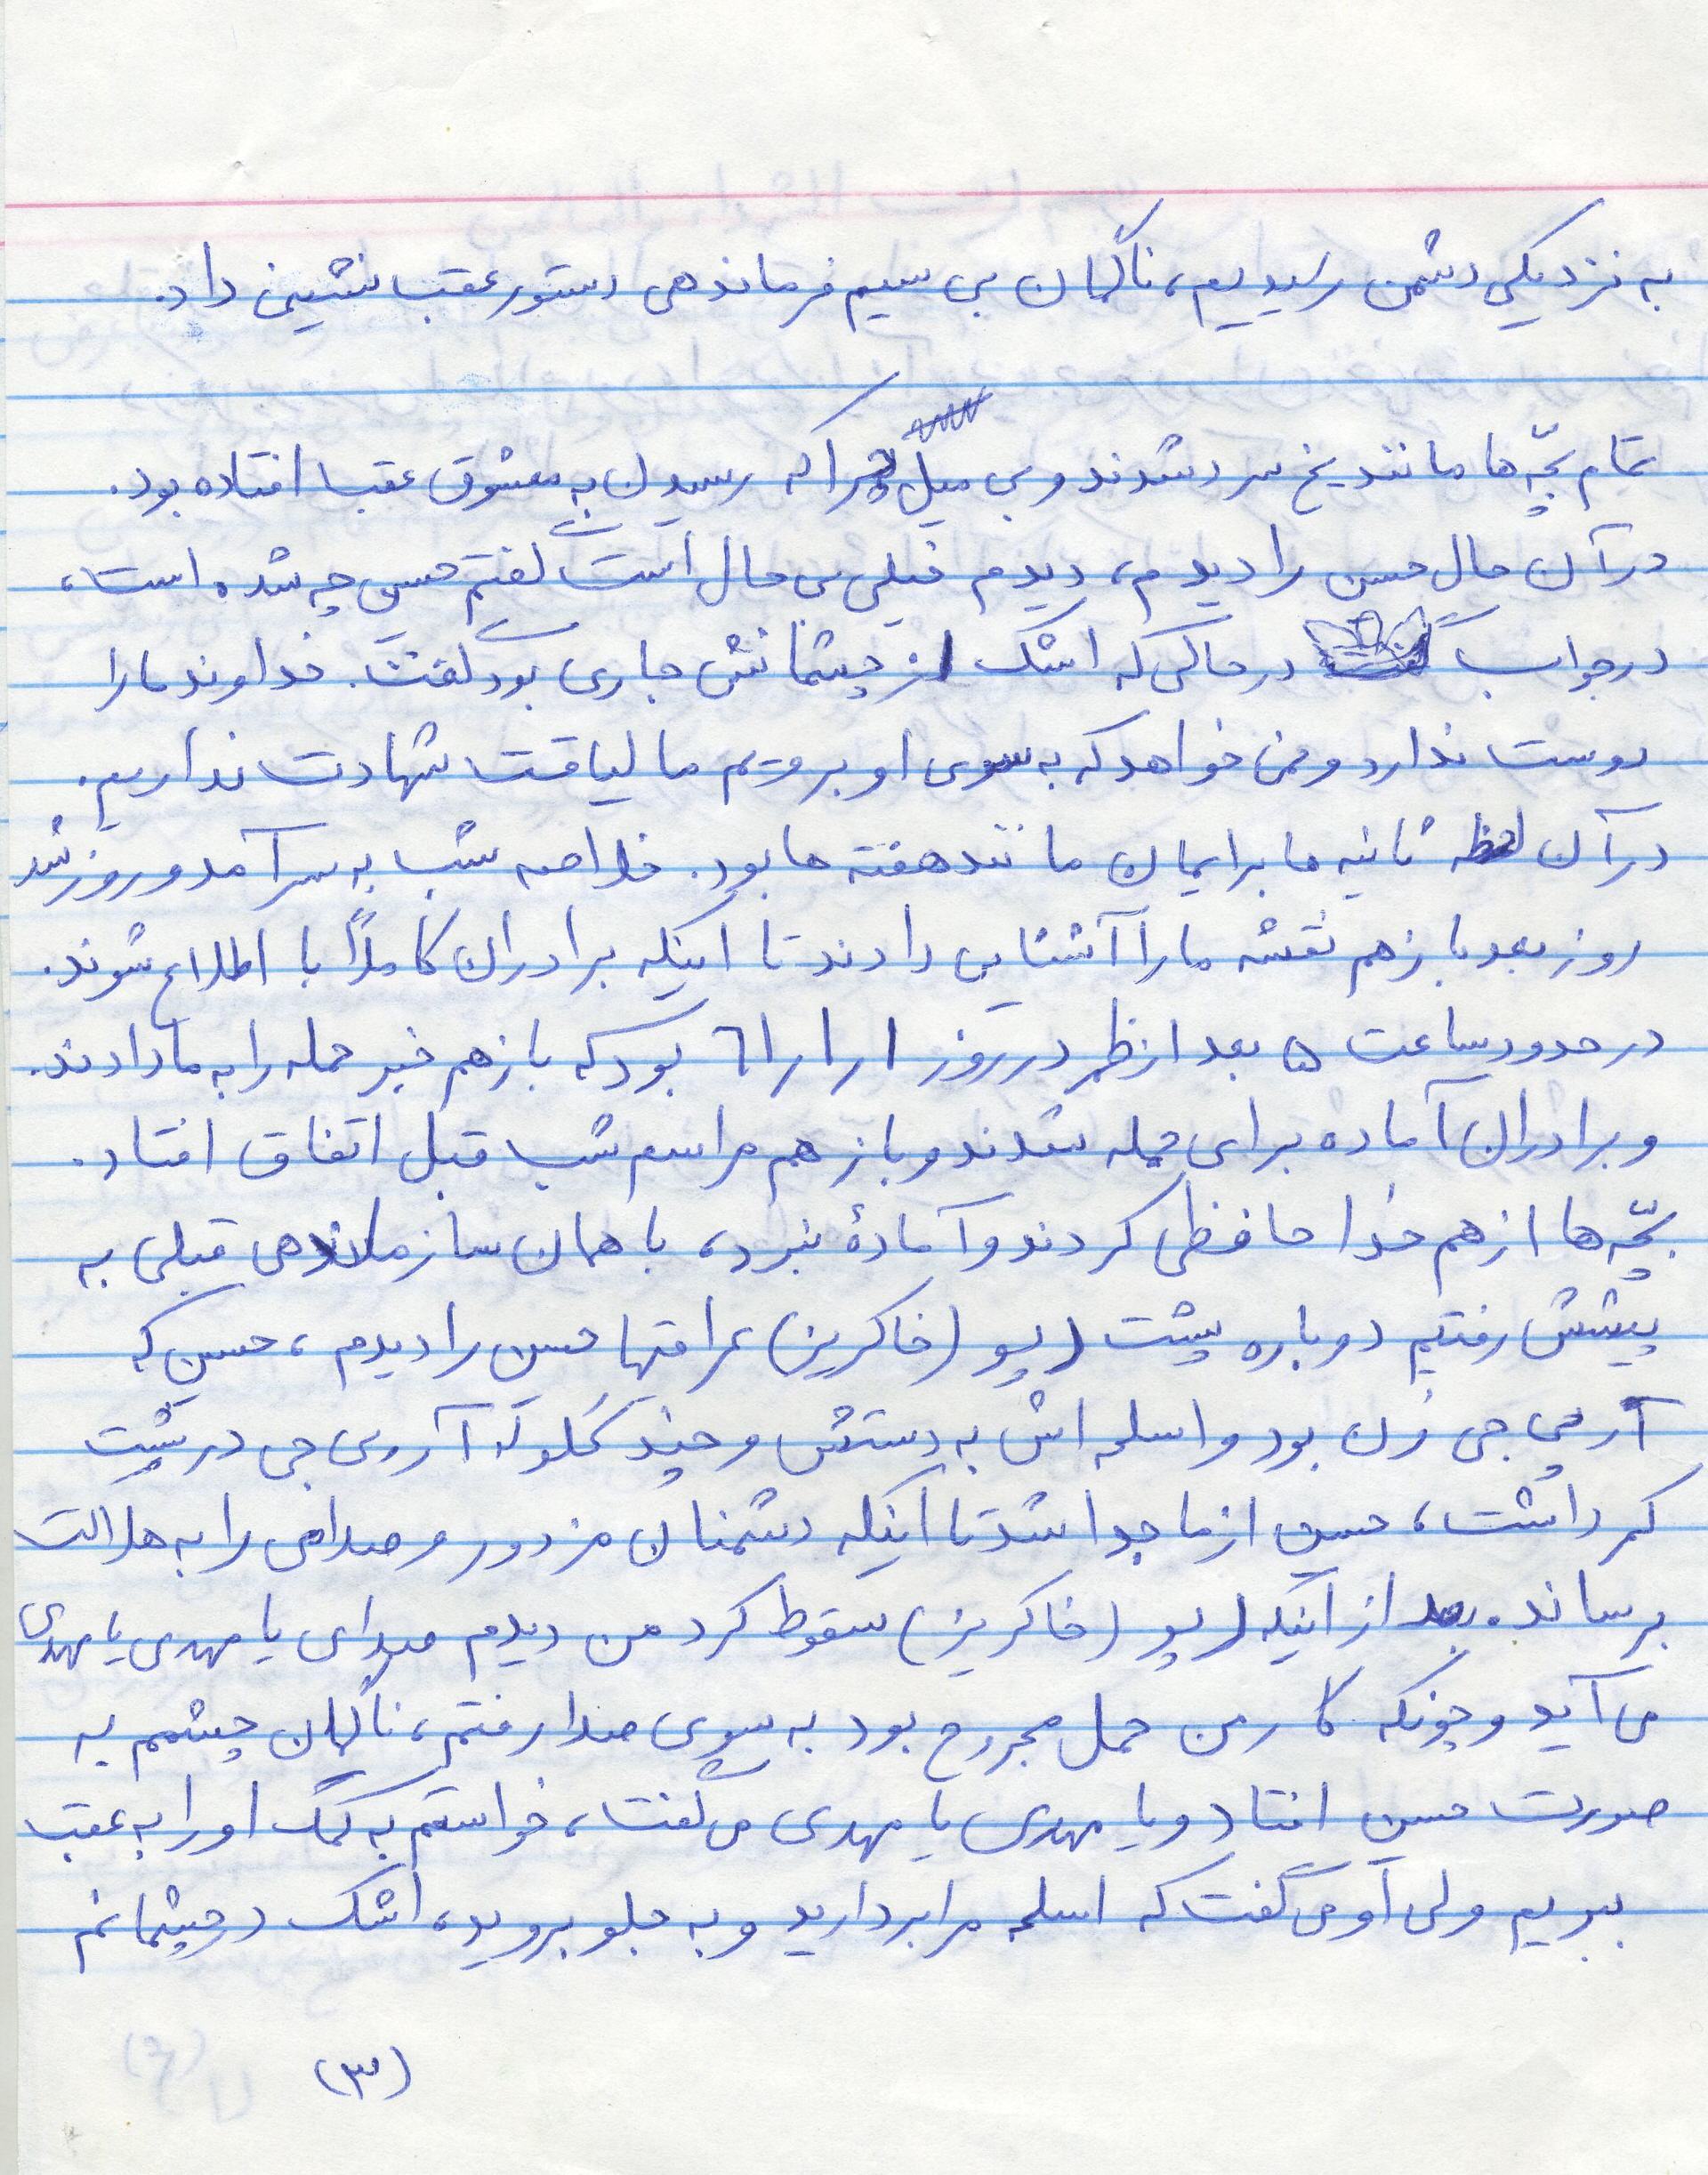 به نزدیکی دشمن رسیدیم، ناگهان بی سیم فرماندهی دستور عقب نشینی داد.
تمام بچّه ها مانند یخ سرد شدند و بی میل چرا که رسیدن به معشوق عقب افتاده بود.
در آن حال حسین را دیدم، دیدم خیلی بی حال است گفتم حسین چه شده است،
در جواب در حالی که اشک از چشمانش جاری بود گفت. خداوند ما را
دوست ندارد و نمی خواهد که به سوی او برویم ما لیاقت شهادت نداریم.
در آن لحظه ثانیه ها برایمان مانند هفته ها بود. خلاصه شب به سر آمد و روز شد
روز بعد باز هم نقشه ما را آشنایی دادند تا اینکه برادران کاملاً با اطلاع شوند.
در حدود ساعت ۵ بعد از ظهر در روز ۱ر۱ر۶۱ بود که باز هم خبر حمله را به ما دادند.
و برادران آماده برای حمله شدند و باز هم مراسم شب قبل اتفاق افتاد.
بچّه ها از هم خدا حافظی کردند و آمادهٔ نبرد، با همان سازماندهی قبلی به
پیشش رفتیم دوباره پشت رپو (خاکریز) عراقیها حسین را دیدم، حسین که
آرپی جی زن بود و اسلحه اش به دستش و چند گلوله آرپی جی در پشت
کمر داشت، حسین از ما جدا شد تا اینکه دشمنان مزدور و صدامی را به هلاکت
برساند. بعد از اینکه رپو (خاکریز) سقوط کرد من دیدم صدای یا مهدی یا مهدی
می آید و چونکه کار من حمل مجروح بود به سوی صدا رفتم، ناگهان چشمم به
صورت حسین افتاد و یا مهدی یا مهدی می گفت، خواستم به کمک او را به عقب
ببریم ولی او می گفت که اسلحه مرا بردارید و به جلو بروید، اشک در چشمانم
(۳)